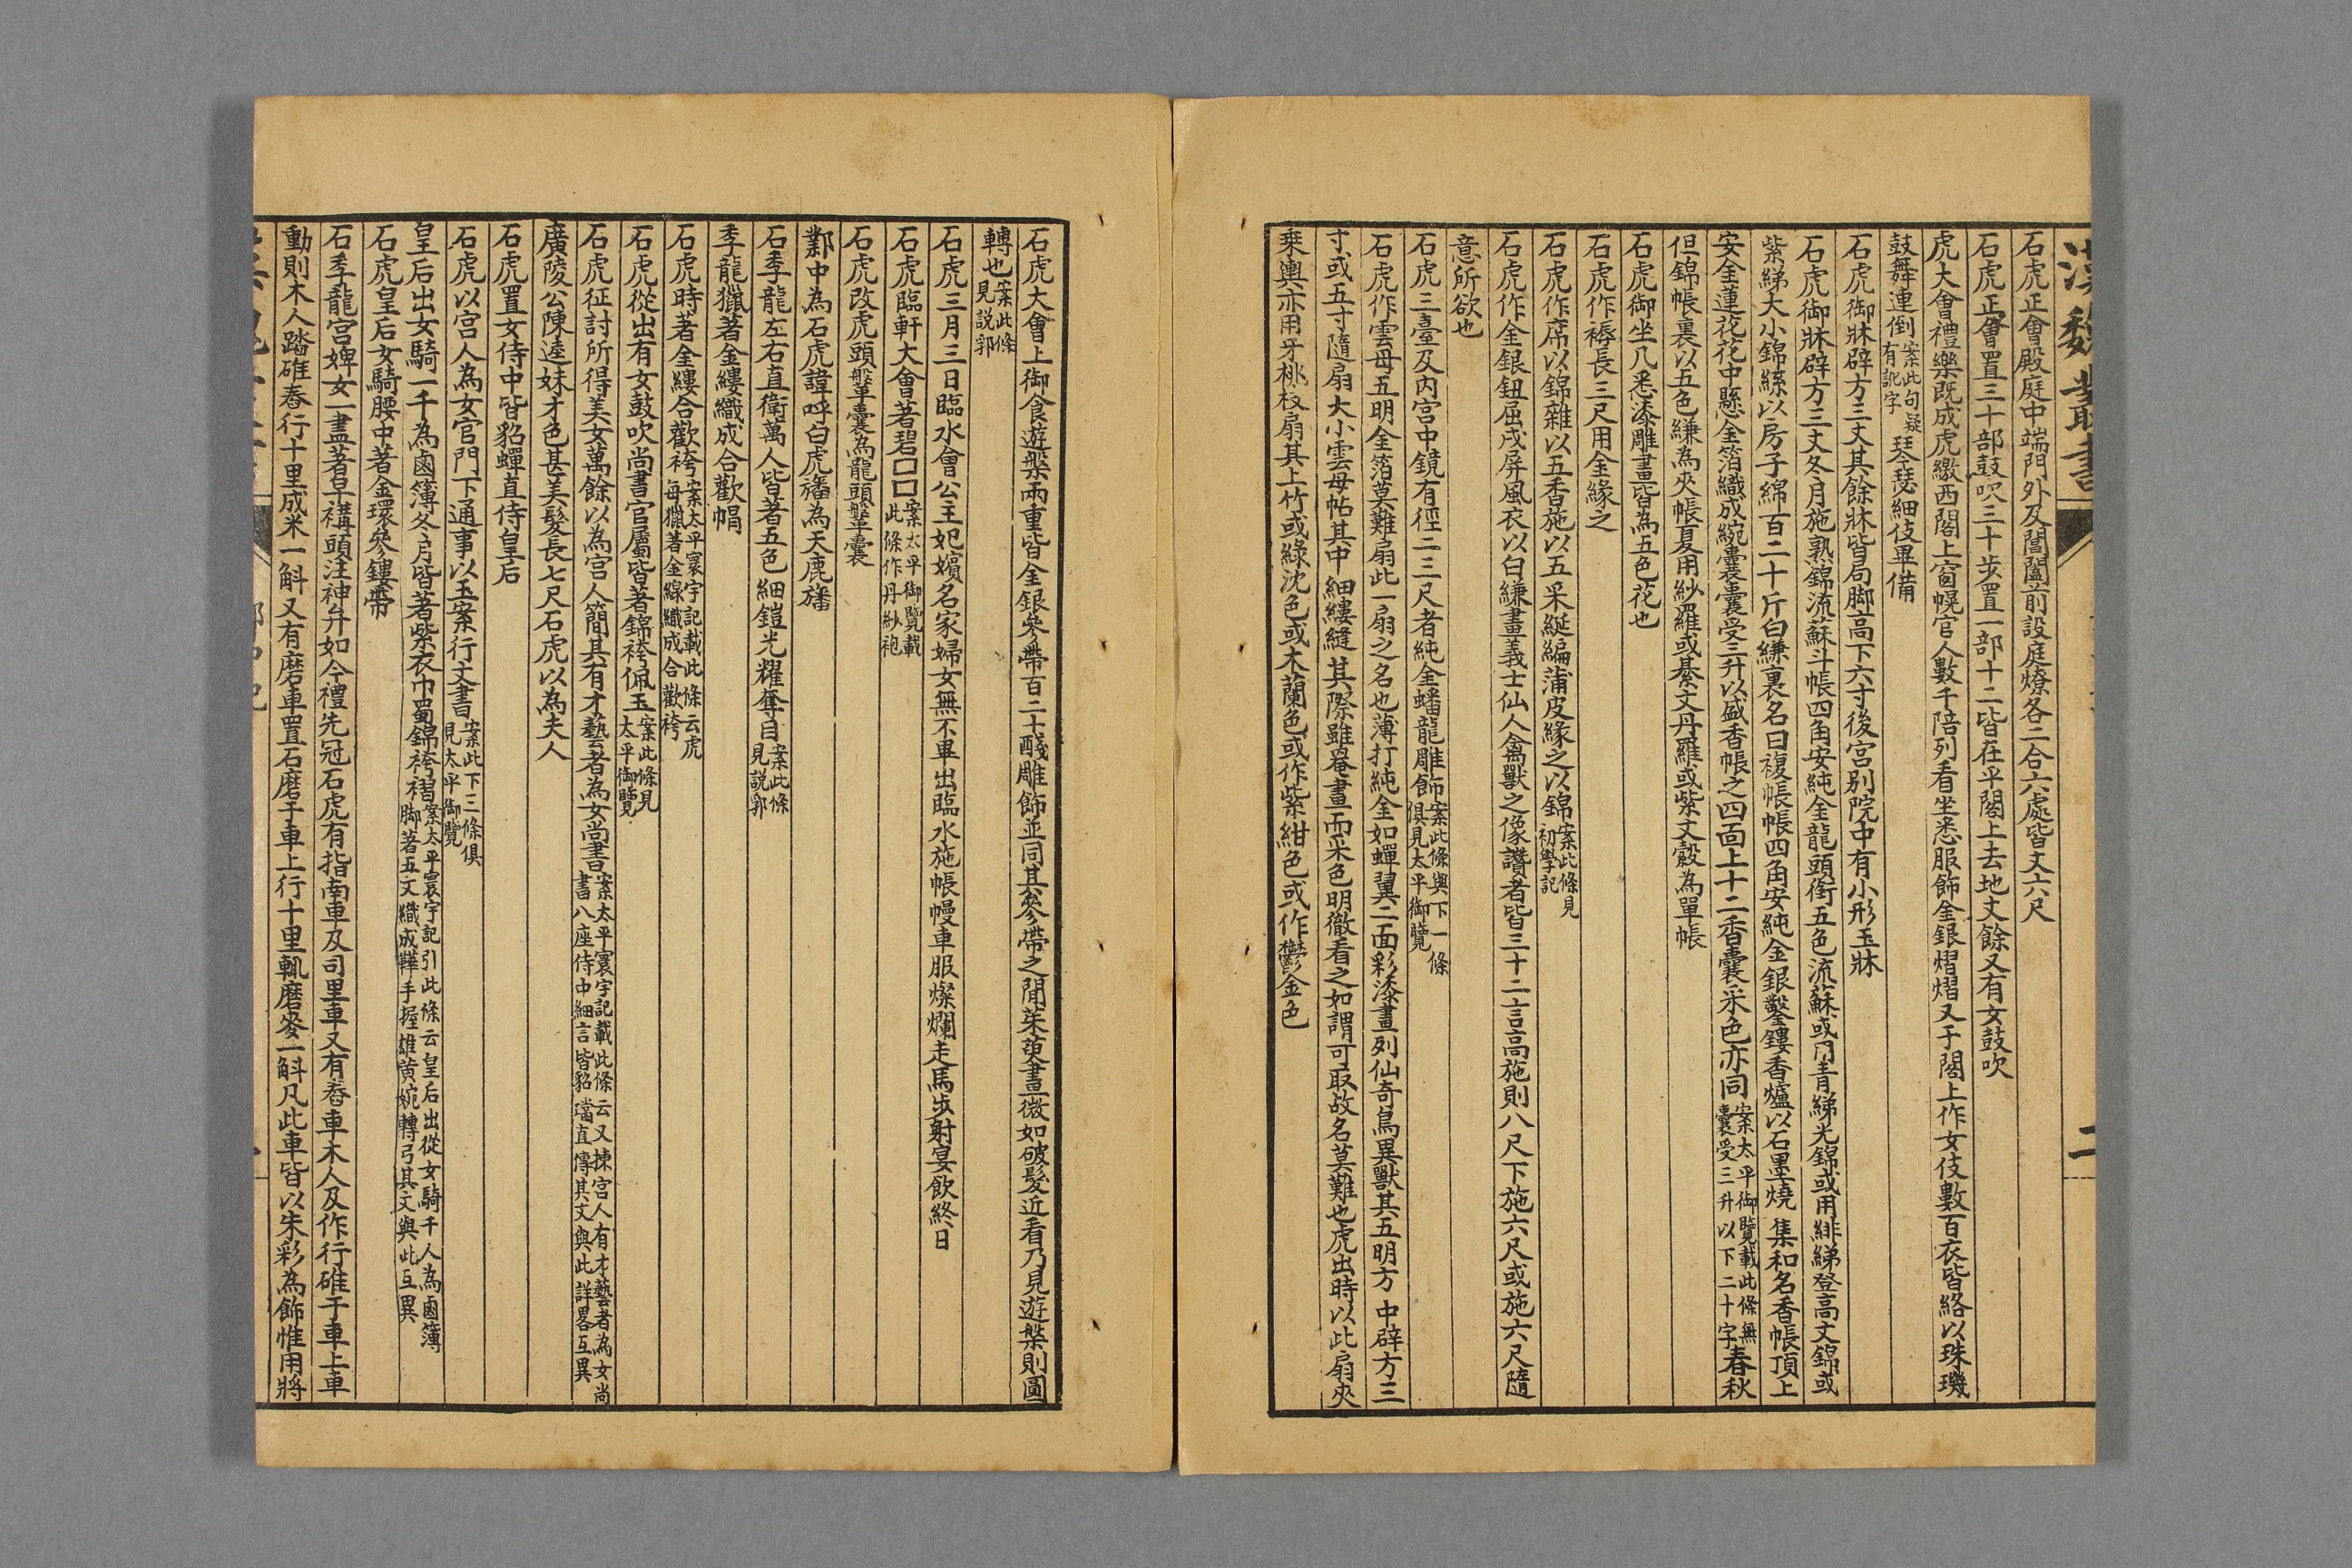 漢魏叢書
二
石虎正會殿庭中端門外及閶闔前設庭燎各二合六處皆丈六尺
石虎正會置三十部鼓吹三十步置一部十二皆在平閣上去地丈餘又有女鼓吹
虎大會禮樂既成虎繳西閣上窗幌官人數千陪列看坐悉服飾金銀熠熠又于閣上作女伎數百衣皆絡以珠璣
鼓舞連倒案此句疑有訛字琴瑟細伎畢備
石虎御牀辟方三丈其餘牀皆局脚高下六寸後宮别院中有小形玉牀
石虎御牀辟方三丈冬月施熟錦流蘇斗帳四角安純金龍頭銜五色流蘇或用青綈光錦或用緋綈登高文錦或
紫綈大小錦絲以房子綿百二十斤白縑裏名曰複帳帳四角安純金銀鑿鏤香爐以石墨燒集和名香帳頂上
安金蓮花花中懸金箔織成綩囊囊受三升以盛香帳之四面上十二香囊采色亦同案太平御覽載此條無囊受三升以下二十字春秋
但錦帳裏以五色縑為夾帳夏用紗羅或綦文丹羅或紫文縠為單帳
石虎御坐几悉漆雕畫皆為五色花也
石虎作褥長三尺用金緣之
石虎作席以錦雜以五香施以五采綖編蒲皮緣之以錦案此條見初學記
石虎作金銀鈕屈戌屏風衣以白縑畫義士仙人禽獸之像讚者皆三十二言高施則八尺下施六尺或施六尺隨
意所欲也
石虎三臺及内宮中鏡有徑二三尺者純金蟠龍雕飾案此條與下一條俱見太平御覽
石虎作雲母五明金箔莫難扇此一扇之名也薄打純金如蟬翼二面彩漆畫列仙奇鳥異獸其五明方中辟方三
寸或五寸隨扇大小雲母帖其中細縷縫其際雖罨畫而采色明徹看之如謂可取故名莫難也虎出時以此扇夾
乘輿亦用牙桃枝扇其上竹或綠沈色或木蘭色或作紫紺色或作鬱金色
石虎大會上御食遊槃兩重皆金銀參帶百二十醆雕飾並同其參帶之間茱萸畫微如破髮近看乃見遊槃則圓
轉也案此條見説郛
石虎三月三日臨水會公主妃嬪名家婦女無不畢出臨水施帳幔車服燦爛走馬步射宴飲終日
石虎臨軒大會著碧囗囗案太平御覽載此條作丹紗袍
石虎改虎頭鞶囊為龍頭鞶囊
鄴中為石虎諱呼白虎旛為天鹿旛
石季龍左右直衛萬人皆著五色細鎧光耀奪目案此條見説郛
季龍獵著金縷織成合歡帽
石虎時著金縷合歡袴案太平寰宇記載此條云虎每獵著金線織成合歡袴
石虎從出有女鼓吹尚書官屬皆著錦袴佩玉案此條見太平御覽
石虎征討所得美女萬餘以為宮人簡其有才藝者為女尚書案太平寰宇記載此條云又揀宮人有才藝者為女尚書八座侍中細言皆貂璫直傳其文與此詳畧互異
廣陵公陳逵妹才色甚美髮長七尺石虎以為夫人
石虎置女侍中皆貂蟬直侍皇后
石虎以宮人為女官門下通事以玉案行文書案此下三條俱見太平御覽
皇后出女騎一千為鹵簿冬月皆著紫衣巾蜀錦袴褶案太平寰宇記引此條云皇后出從女騎千人為鹵簿脚著五文織成鞾手握雄黄婉轉弓其文與此互異
石虎皇后女騎腰中著金環參鏤帶
石季龍宮婢女一盡著皁褠頭注神弁如今禮先冠石虎有指南車及司里車又有舂車木人及作行碓于車上車
動則木人踏碓舂行十里成米一斛又有磨車置石磨于車上行十里輒磨麥一斛凡此車皆以朱彩為飾惟用將